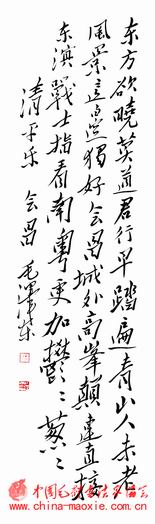 东方欲晓莫道君行早踏遍青山人未老
风景这边独好会昌城外高峰颠连直接
东溟战士指看南粤更加郁〻葱〻
清平乐 会昌
www.china-maoxie.com.cn